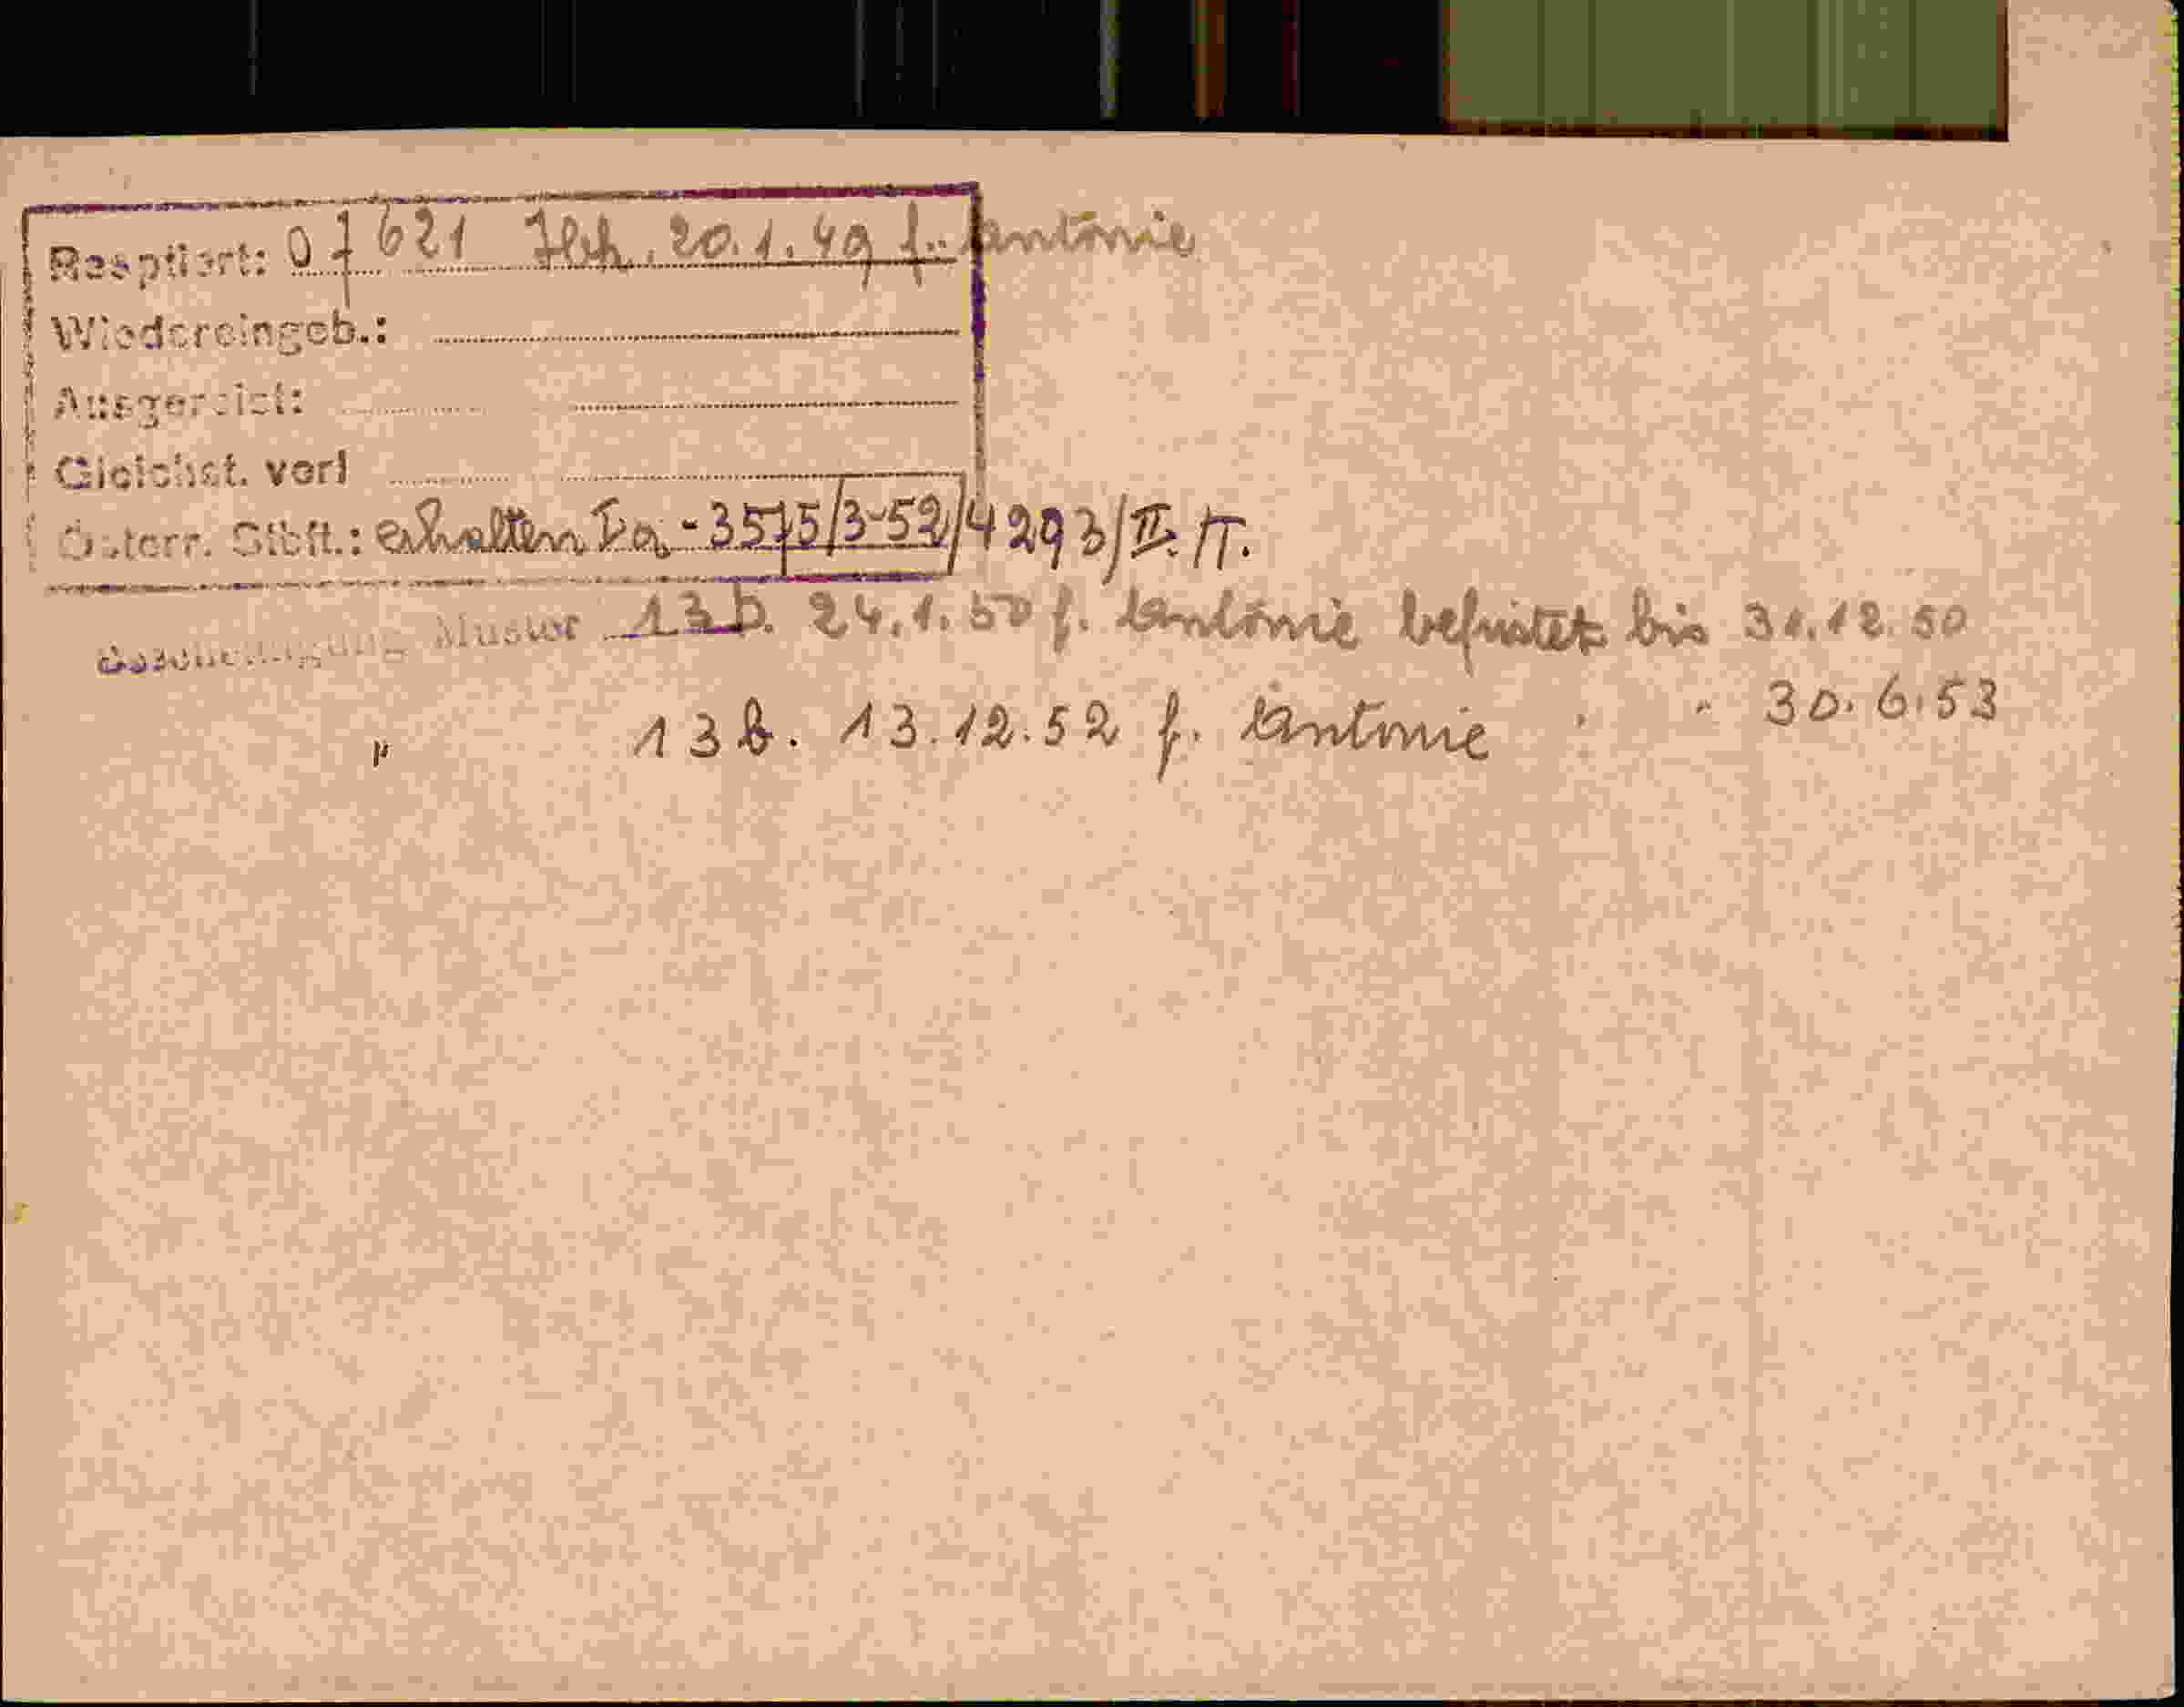 Reoptiert: 07621 Jbk. 20.1.49 f. Antonie
Wiedereingeb.:
Ausgereist:
Gleichst. verl
Österr. Stbft.: erhalten Ia-3575/3-52/4293/II. IT.
Bescheinigung Muster 13b. 24.1.50 f. Antonie befristet bis 31.12.50
" 13b. 13.12.52 f. Antonie " " 30.6.53